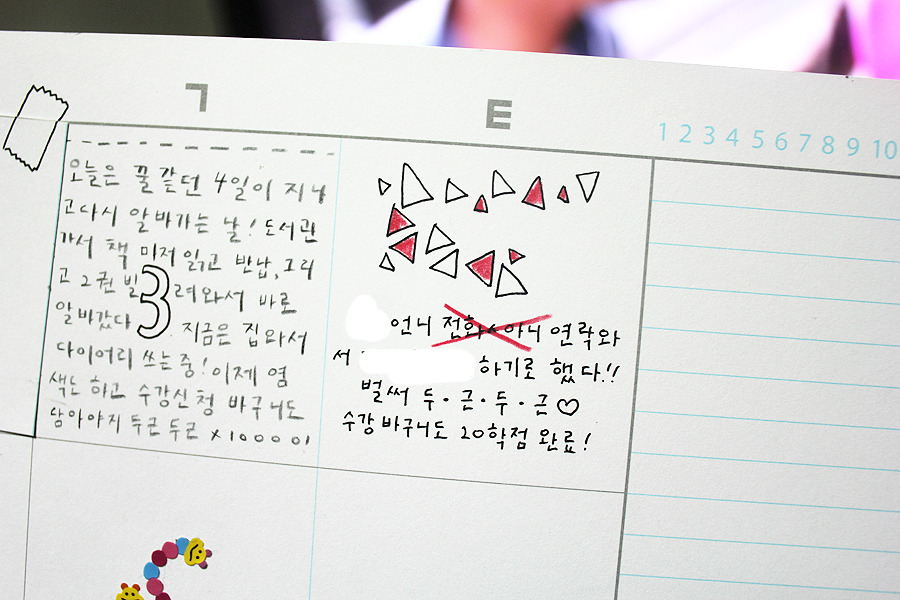 ㄱ
E
1 2 3 4 5 6 7 8 9 10
오늘은 꿀같던 4일이 지나
고다시 알바가는 날! 도서관
가서 책 미저 읽고 반납, 그리
고 2권 빌려와서 바로
알바갔다 지금은 집와서
다이어리 쓰는중! 이제 염
색도 하고 수강신청 바구니도
담아야지 두근 두근 x10000!
3
언니 전화x아니 연락와
서
하기로 했다!!
벌써 두·근·두·근♡
수강바구니도 20학점 완료!